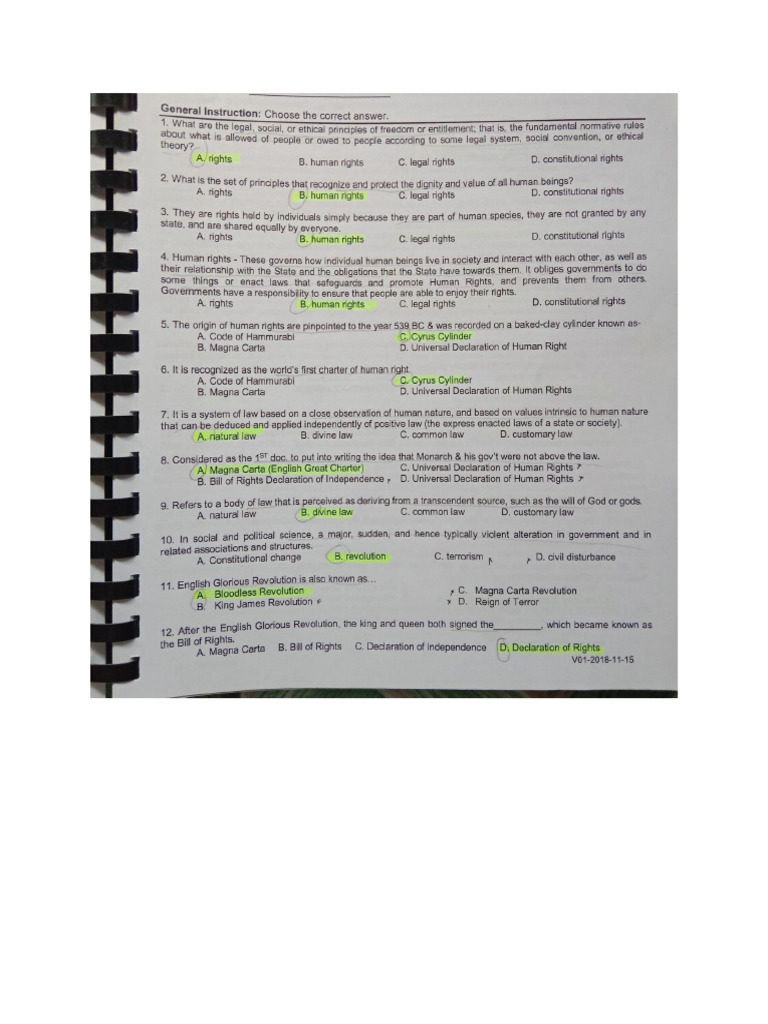 General Instruction: Choose the correct answer.
1. What are the legal, social, or ethical principles of freedom or entitlement; that is, the fundamental normative rules
about what is allowed of people or owed to people according to some legal system, social convention, or ethical
theory?
A. rights B. human rights C. legal rights D. constitutional rights
2. What is the set of principles that recognize and protect the dignity and value of all human beings?
A. rights B. human rights C. legal rights D. constitutional rights
3. They are rights held by individuals simply because they are part of human species, they are not granted by any
state, and are shared equally by everyone.
A. rights B. human rights C. legal rights D. constitutional rights
4. Human rights - These governs how individual human beings live in society and interact with each other, as well as
their relationship with the State and the obligations that the State have towards them. It obliges governments to do
some things or enact laws that safeguards and promote Human Rights, and prevents them from others.
Governments have a responsibility to ensure that people are able to enjoy their rights.
A. rights B. human rights C. legal rights D. constitutional rights
5. The origin of human rights are pinpointed to the year 539 BC & was recorded on a baked-clay cylinder known as-
A. Code of Hammurabi C. Cyrus Cylinder
B. Magna Carta D. Universal Declaration of Human Right
6. It is recognized as the world's first charter of human right.
A. Code of Hammurabi C. Cyrus Cylinder
B. Magna Carta D. Universal Declaration of Human Rights
7. It is a system of law based on a close observation of human nature, and based on values intrinsic to human nature
that can be deduced and applied independently of positive law (the express enacted laws of a state or society).
A. natural law B. divine law C. common law D. customary law
8. Considered as the 1ST doc. to put into writing the idea that Monarch & his gov't were not above the law.
A. Magna Carta (English Great Charter) C. Universal Declaration of Human Rights
B. Bill of Rights Declaration of Independence D. Universal Declaration of Human Rights
9. Refers to a body of law that is perceived as deriving from a transcendent source, such as the will of God or gods.
A. natural law B. divine law C. common law D. customary law
10. In social and political science, a major, sudden, and hence typically violent alteration in government and in
related associations and structures.
A. Constitutional change B. revolution C. terrorism D. civil disturbance
11. English Glorious Revolution is also known as...
A. Bloodless Revolution C. Magna Carta Revolution
B. King James Revolution D. Reign of Terror
12. After the English Glorious Revolution, the king and queen both signed the________, which became known as
the Bill of Rights.
A. Magna Carta B. Bill of Rights C. Declaration of Independence D. Declaration of Rights
V01-2018-11-15